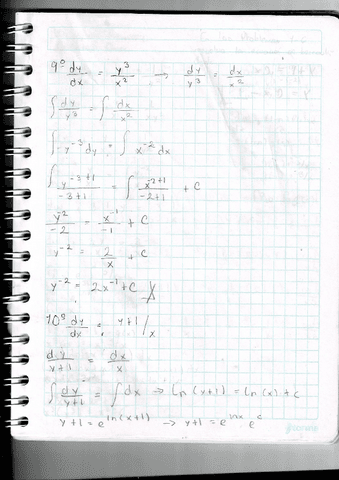 9° dy/dx = y³/x² → dy/y³ = dx/x²
∫ dy/y³ = ∫ dx/x²
∫ y⁻³ dy = ∫ x⁻² dx
∫ y⁻³⁺¹/-3+1 = ∫ x⁻²⁺¹/-2+1 + C
y⁻²/-2 = x⁻¹/-1 + C
y⁻² = 2/x + C
y⁻² = 2x⁻¹ + C
10° dy/dx = y+1/x
dy/y+1 = dx/x
∫ dy/y+1 = ∫ dx → Ln (y+1) = Ln (x) + c
y+1 = e^ln(x+1) → y+1 = e^lnx . e^c